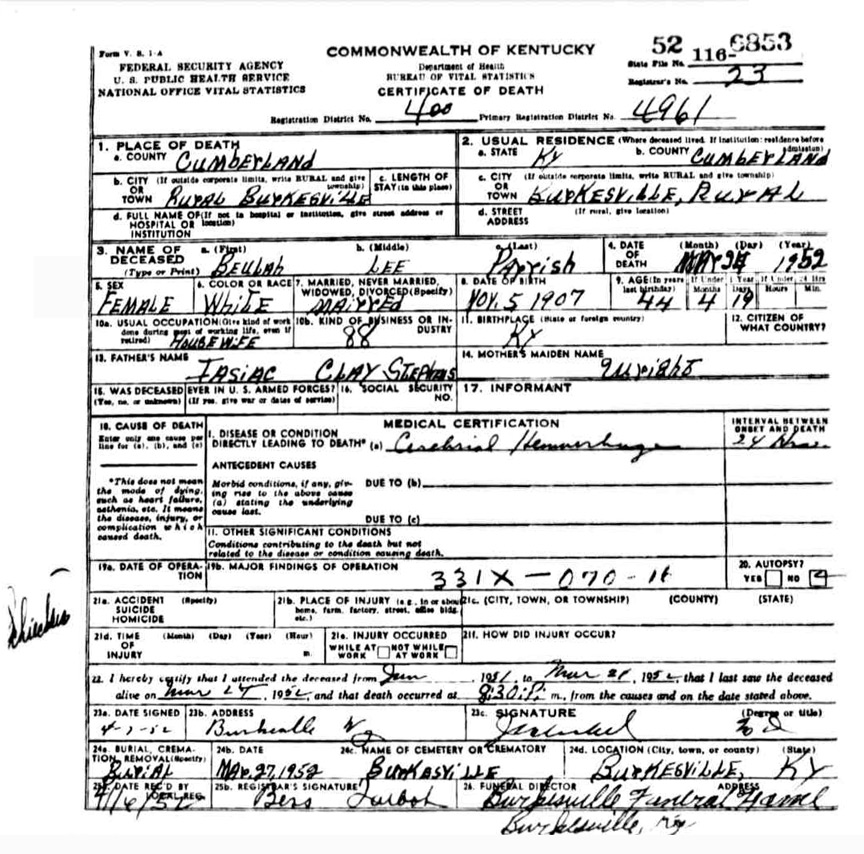 Form V. S. 1-A
FEDERAL SECURITY AGENCY
U. S. PUBLIC HEALTH SERVICE
NATIONAL OFFICE VITAL STATISTICS
COMMONWEALTH OF KENTUCKY
Department of Health
BUREAU OF VITAL STATISTICS
CERTIFICATE OF DEATH
State File No. 52 116-6853
Registrar's No. 23
Registration District No. 400 Primary Registration District No. 4961
1. PLACE OF DEATH
a. COUNTY CUMBERLAND
2. USUAL RESIDENCE (Where deceased lived. If institution: residence before admission)
a. STATE KY b. COUNTY CUMBERLAND
b. CITY (If outside corporate limits, write RURAL and give township)
OR TOWN RURAL BURKESVILLE
c. LENGTH OF STAY (in this place)
c. CITY (If outside corporate limits, write RURAL and give township)
OR TOWN BURKESVILLE, RURAL
d. FULL NAME OF (If not in hospital or institution, give street address or location)
HOSPITAL OR INSTITUTION
d. STREET ADDRESS (If rural, give location)
3. NAME OF DECEASED (Type or Print)
a. (First) BEULAH b. (Middle) LEE c. (Last) PARRISH
4. DATE OF DEATH (Month) (Day) (Year) MAR 1952
5. SEX FEMALE
6. COLOR OR RACE WHITE
7. MARRIED, NEVER MARRIED, WIDOWED, DIVORCED (Specify) MARRIED
8. DATE OF BIRTH NOV. 5 1907
9. AGE (In years last birthday) 44 If Under 1 Year Months 4 Days 19 If Under 24 Hrs Hours Min.
10a. USUAL OCCUPATION (Give kind of work done during most of working life, even if retired) HOUSEWIFE
10b. KIND OF BUSINESS OR INDUSTRY 88
11. BIRTHPLACE (State or foreign country) KY
12. CITIZEN OF WHAT COUNTRY?
13. FATHER'S NAME IASIAC CLAY STEPHENS
14. MOTHER'S MAIDEN NAME Wright
15. WAS DECEASED EVER IN U. S. ARMED FORCES? (Yes, no, or unknown) (If yes, give war or dates of service)
16. SOCIAL SECURITY NO.
17. INFORMANT
18. CAUSE OF DEATH
Enter only one cause per line for (a), (b), and (c)
MEDICAL CERTIFICATION
INTERVAL BETWEEN ONSET AND DEATH
I. DISEASE OR CONDITION DIRECTLY LEADING TO DEATH* (a) Cerebrial Hemmorhage 24 Hrs.
*This does not mean the mode of dying, such as heart failure, asthenia, etc. It means the disease, injury, or complication which caused death.
ANTECEDENT CAUSES
Morbid conditions, if any, giving rise to the above cause (a) stating the underlying cause last.
DUE TO (b)
DUE TO (c)
11. OTHER SIGNIFICANT CONDITIONS
Conditions contributing to the death but not related to the disease or condition causing death.
19a. DATE OF OPERATION
19b. MAJOR FINDINGS OF OPERATION
331X-070-16
20. AUTOPSY?
YES NO
21a. ACCIDENT SUICIDE HOMICIDE (Specify)
21b. PLACE OF INJURY (e.g., in or about home, farm, factory, street, office bldg. etc.)
21c. (CITY, TOWN, OR TOWNSHIP) (COUNTY) (STATE)
21d. TIME OF INJURY (Month) (Day) (Year) (Hour) m.
21e. INJURY OCCURRED
WHILE AT WORK NOT WHILE AT WORK
21f. HOW DID INJURY OCCUR?
22. I hereby certify that I attended the deceased from Jan 1951, to Mar 1952, that I last saw the deceased
alive on Mar 24, 1952, and that death occurred at 8:30 P. m., from the causes and on the date stated above.
23a. DATE SIGNED 4-7-52
23b. ADDRESS Burkesville Ky
23c. SIGNATURE (Degree or title) MD
24a. BURIAL, CREMATION, REMOVAL (Specify) BURIAL
24b. DATE MAR. 27, 1952
24c. NAME OF CEMETERY OR CREMATORY BURKESVILLE
24d. LOCATION (City, town, or county) (State) BURKESVILLE, KY
25a. DATE REC'D BY LOCAL REG. 4/16/52
25b. REGISTRAR'S SIGNATURE Bess
26. FUNERAL DIRECTOR ADDRESS Burkesville Funeral Home
Burkesville, Ky